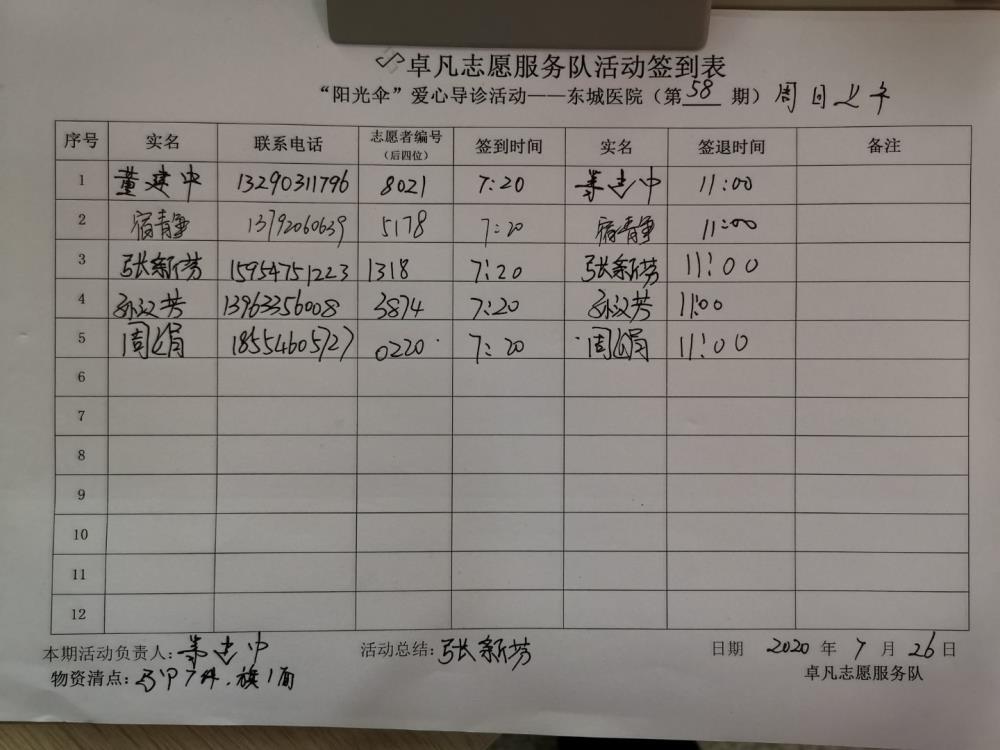 卓凡志愿服务队活动签到表
“阳光伞”爱心导诊活动——东城医院（第58期）周日上午
序号 实名 联系电话 志愿者编号（后四位） 签到时间 实名 签退时间 备注
1 董建中 13290311796 8021 7:20 董建中 11:00
2 宿静 13792060639 5178 7:20 宿静 11:00
3 张新芳 15954751223 1318 7:20 张新芳 11:00
4 孙汉芳 13963356008 3874 7:20 孙汉芳 11:00
5 周娟 18554605727 0220 7:20 周娟 11:00
6
7
8
9
10
11
12
本期活动负责人：董建中 活动总结：张新芳 日期 2020 年 7 月 26 日
物资清点：马甲7件，旗1面 卓凡志愿服务队